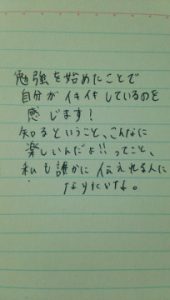 勉強を始めたことで
自分がイキイキしているのを
感じます!
知るということ、こんなに
楽しいんだよ!!ってこと、
私も誰かに伝えれる人に
なりたいな。